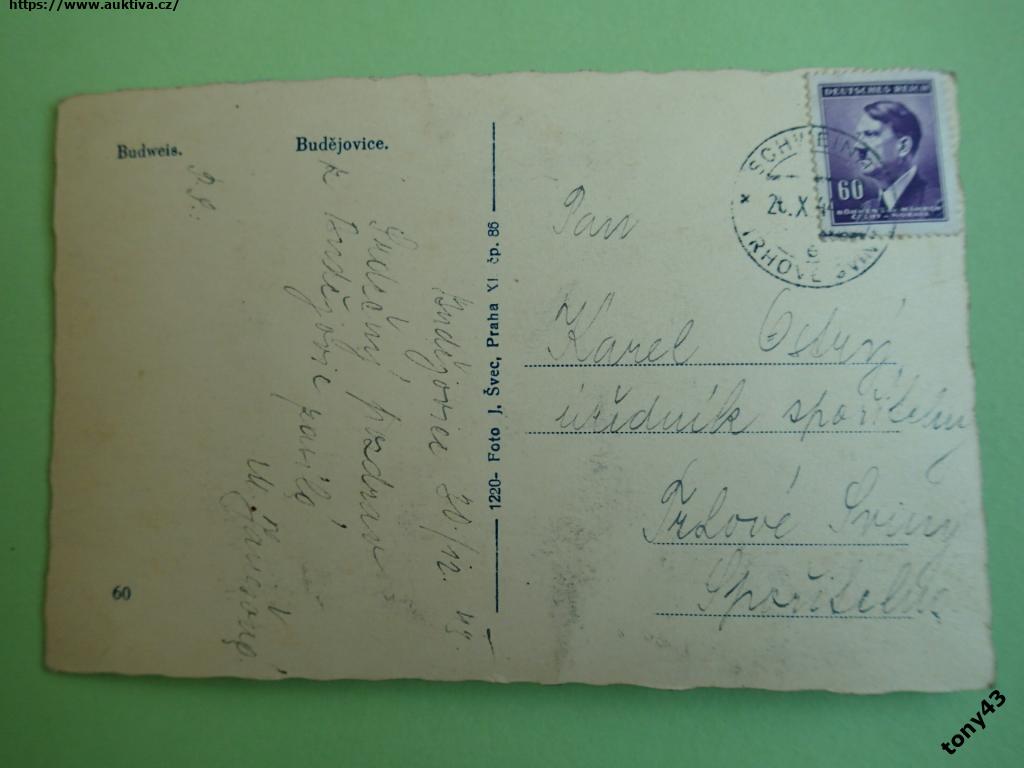 https://www.auktiva.cz/
Budweis.
Budějovice.
P.P.:
Budějovice 20/12. 43.
Srdečný pozdrav
z Budějovic zasílá
M.
1220- Foto J. Švec, Praha XI. čp. 86
60
DEUTSCHES REICH
60
BÖHMEN U. MÄHREN
ČECHY - MORAVA
SCHWEINITZ
X
TRHOVÉ SVINY
Pan
Karel Ostrý
úředník spořitelny
Trhové Sviny
Spořitelna
tony43